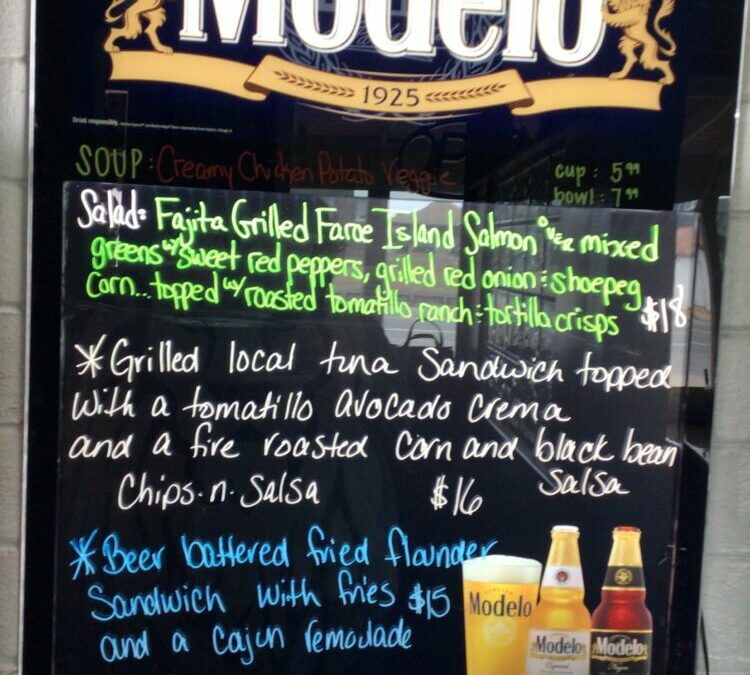 Modelo
1925
Drink responsibly.
SOUP: Creamy Chicken Potato Veggie
cup: 5.99
bowl: 7.99
Salad: Fajita Grilled Faroe Island Salmon over mixed
greens w/ sweet red peppers, grilled red onion : shoepeg
corn... topped w/ roasted tomatillo ranch : tortilla crisps $18
*Grilled local tuna Sandwich topped
with a tomatillo avocado crema
and a fire roasted corn and black bean
Salsa
Chips-n-Salsa $16
*Beer battered fried flounder
Sandwich with fries $15
and a cajun remoulade
Modelo
Modelo
Especial
Modelo
Negra